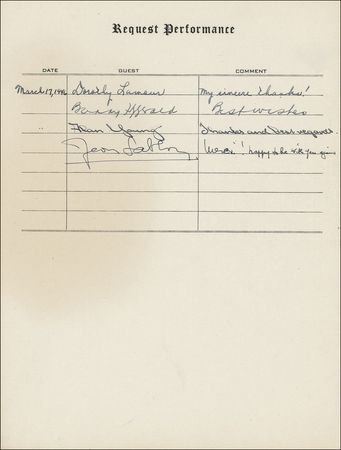 Request Performance
DATE GUEST COMMENT
March 17, Dorothy Lamour My sincere thanks!
Best wishes
Fran Young Thanks and Best regards
Jean Sablon Merci! happy to be with you